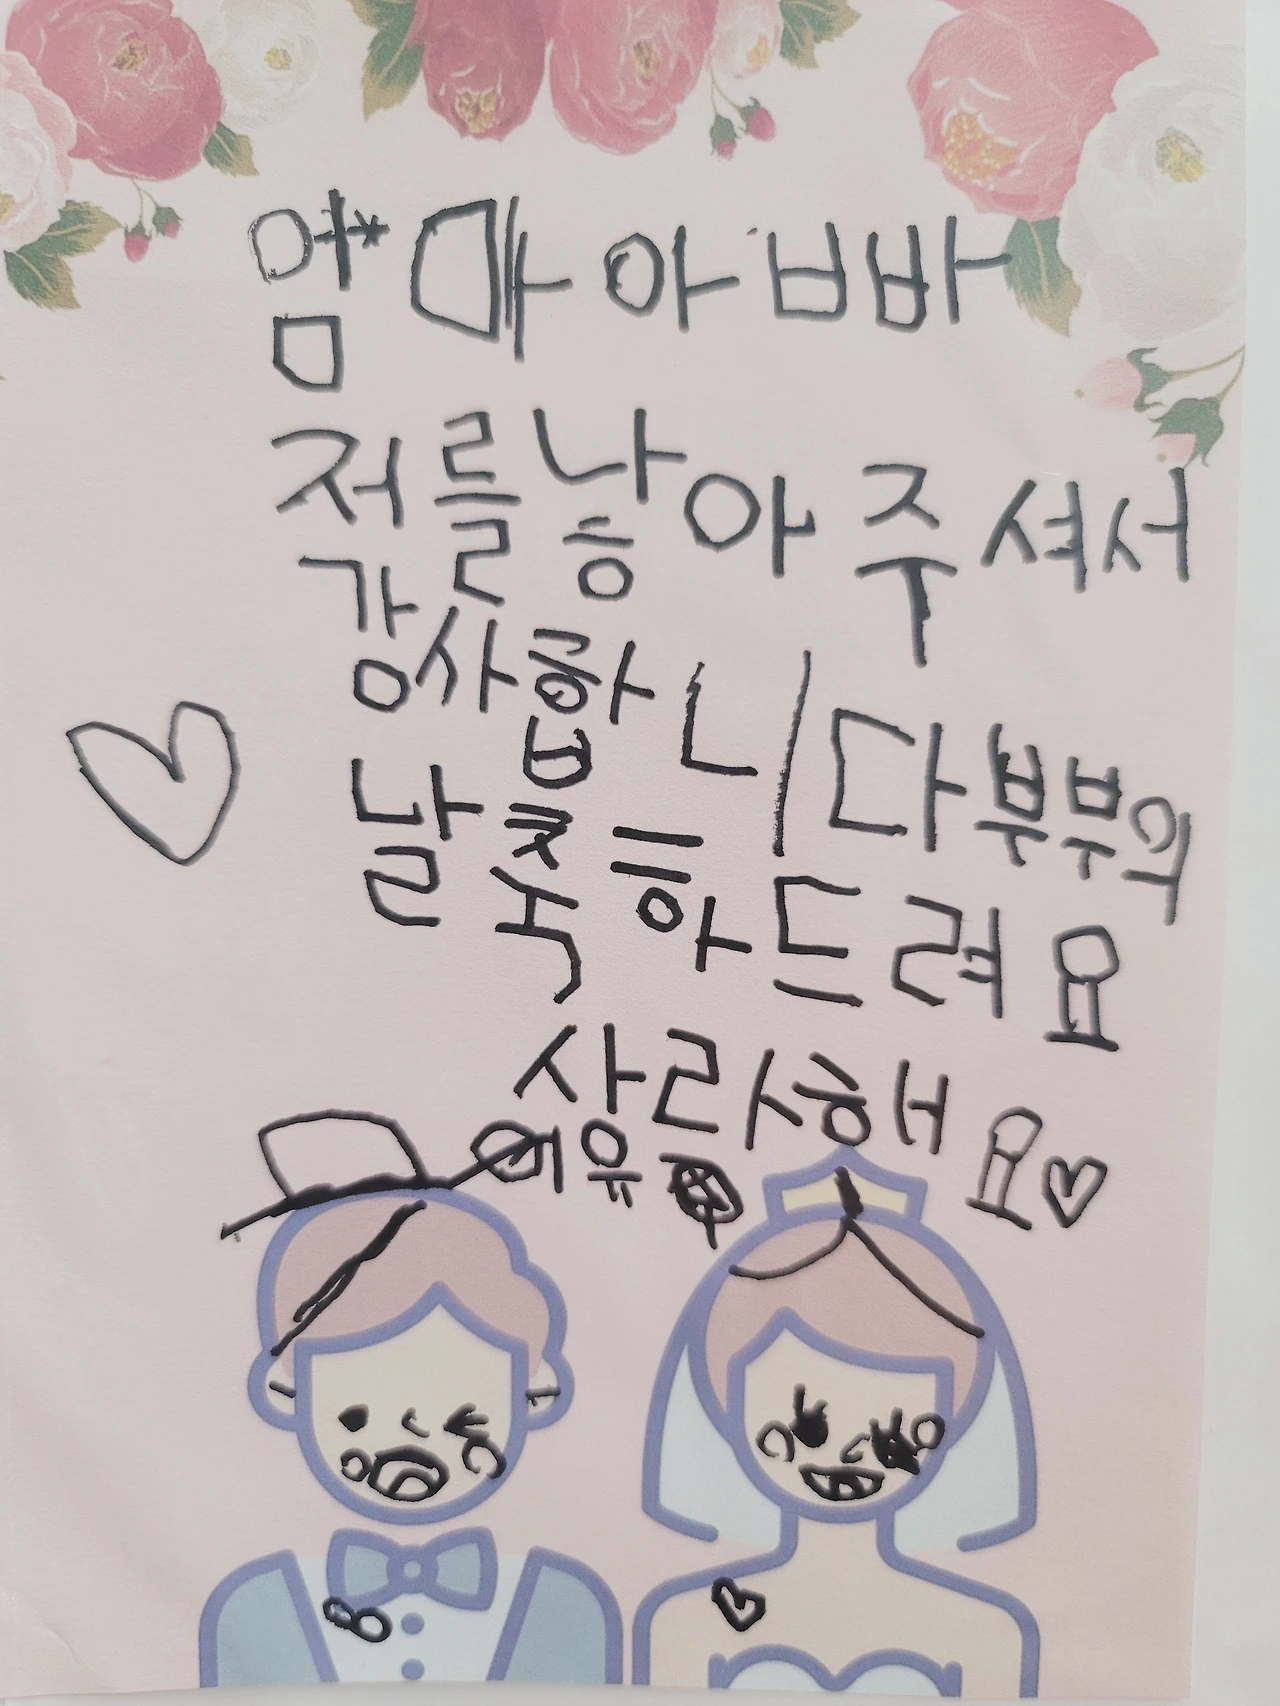 엄마아빠
저를낳아주셔서
강사합니다부부의
날축하드려요
사라해요♡